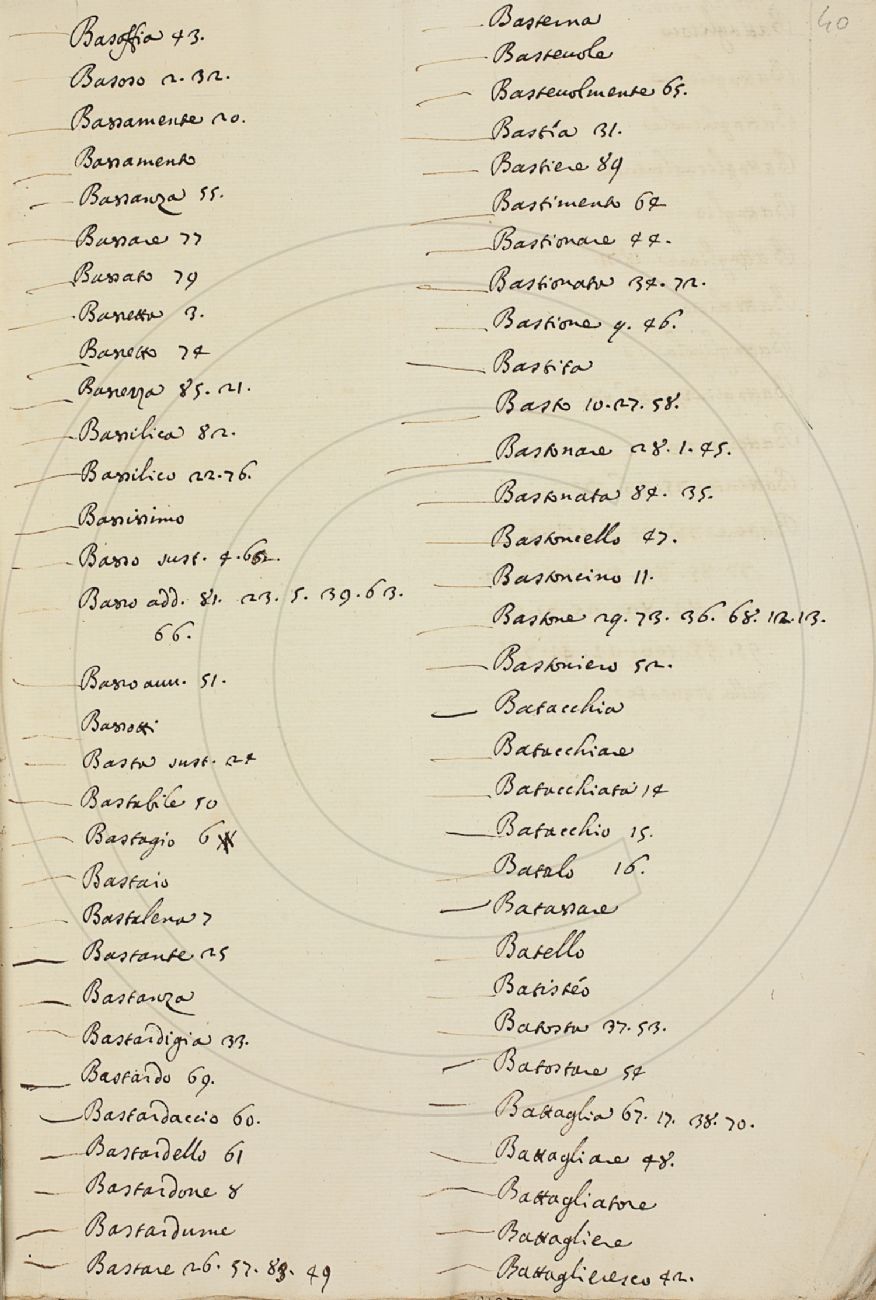 Basoffia 43.
Basoso 2. 32.
Bassamente 20.
Bassamento
Bassanza 55.
Bassare 77
Bassato 79
Bassetta 3.
Bassetto 74
Bassezza 85. 21.
Bassilica 82.
Bassilico 22. 76.
Bassissimo
Basso sust. 4.
Basso add. 81. 23. 5. 39. 63.
66.
Basso auu. 51.
Bassotti
Basta sust. 24
Bastabile 50
Bastagio 6
Bastaio
Bastalena 7
Bastante 25
Bastanza
Bastardigia 33.
Bastardo 69.
Bastardaccio 60.
Bastardello 61
Bastardone 8
Bastardume
Bastare 26. 57. 83. 49
40
Basterna
Basteuole
Basteuolmente 65.
Bastía 31.
Bastiere 89
Bastimento 64
Bastionare 44.
Bastionata 34. 72.
Bastione 9. 46.
Bastita
Basto 10. 27. 58.
Bastonare 28. 1. 45.
Bastonata 84. 35.
Bastoncello 47.
Bastoncino 11.
Bastone 29. 73. 36. 68. 12. 13.
Bastoniero 52.
Batacchia
Batacchiare
Batacchiata 14
Batacchio 15.
Batalo 16.
Batassare
Batello
Batistéo
Batosta 37. 53.
Batostare 54
Battaglia 67. 17. 38. 70.
Battagliare 48.
Battagliatore
Battagliere
Battaglieresco 42.